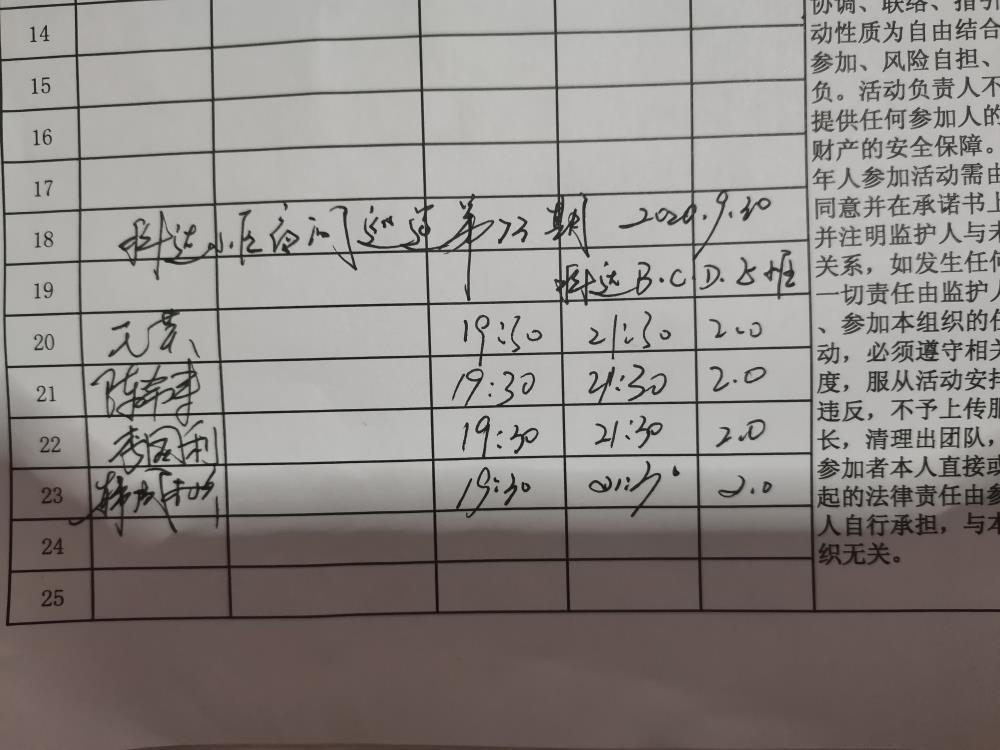 14
15
16
17
18 小区夜间巡 第73期 2020.9.30
19 B.C.D.
20 19:30 21:30 2.0
21 19:30 21:30 2.0
22 19:30 21:30 2.0
23 19:30 21:30 2.0
24
25
协调、联络、指引
动性质为自由结合
参加、风险自担、
负。活动负责人不
提供任何参加人的
财产的安全保障。
年人参加活动需由
同意并在承诺书上
并注明监护人与未
关系，如发生任何
一切责任由监护人
、参加本组织的任
动，必须遵守相关
度，服从活动安排
违反，不予上传服
长，清理出团队，
参加者本人直接或
起的法律责任由参
人自行承担，与本
织无关。